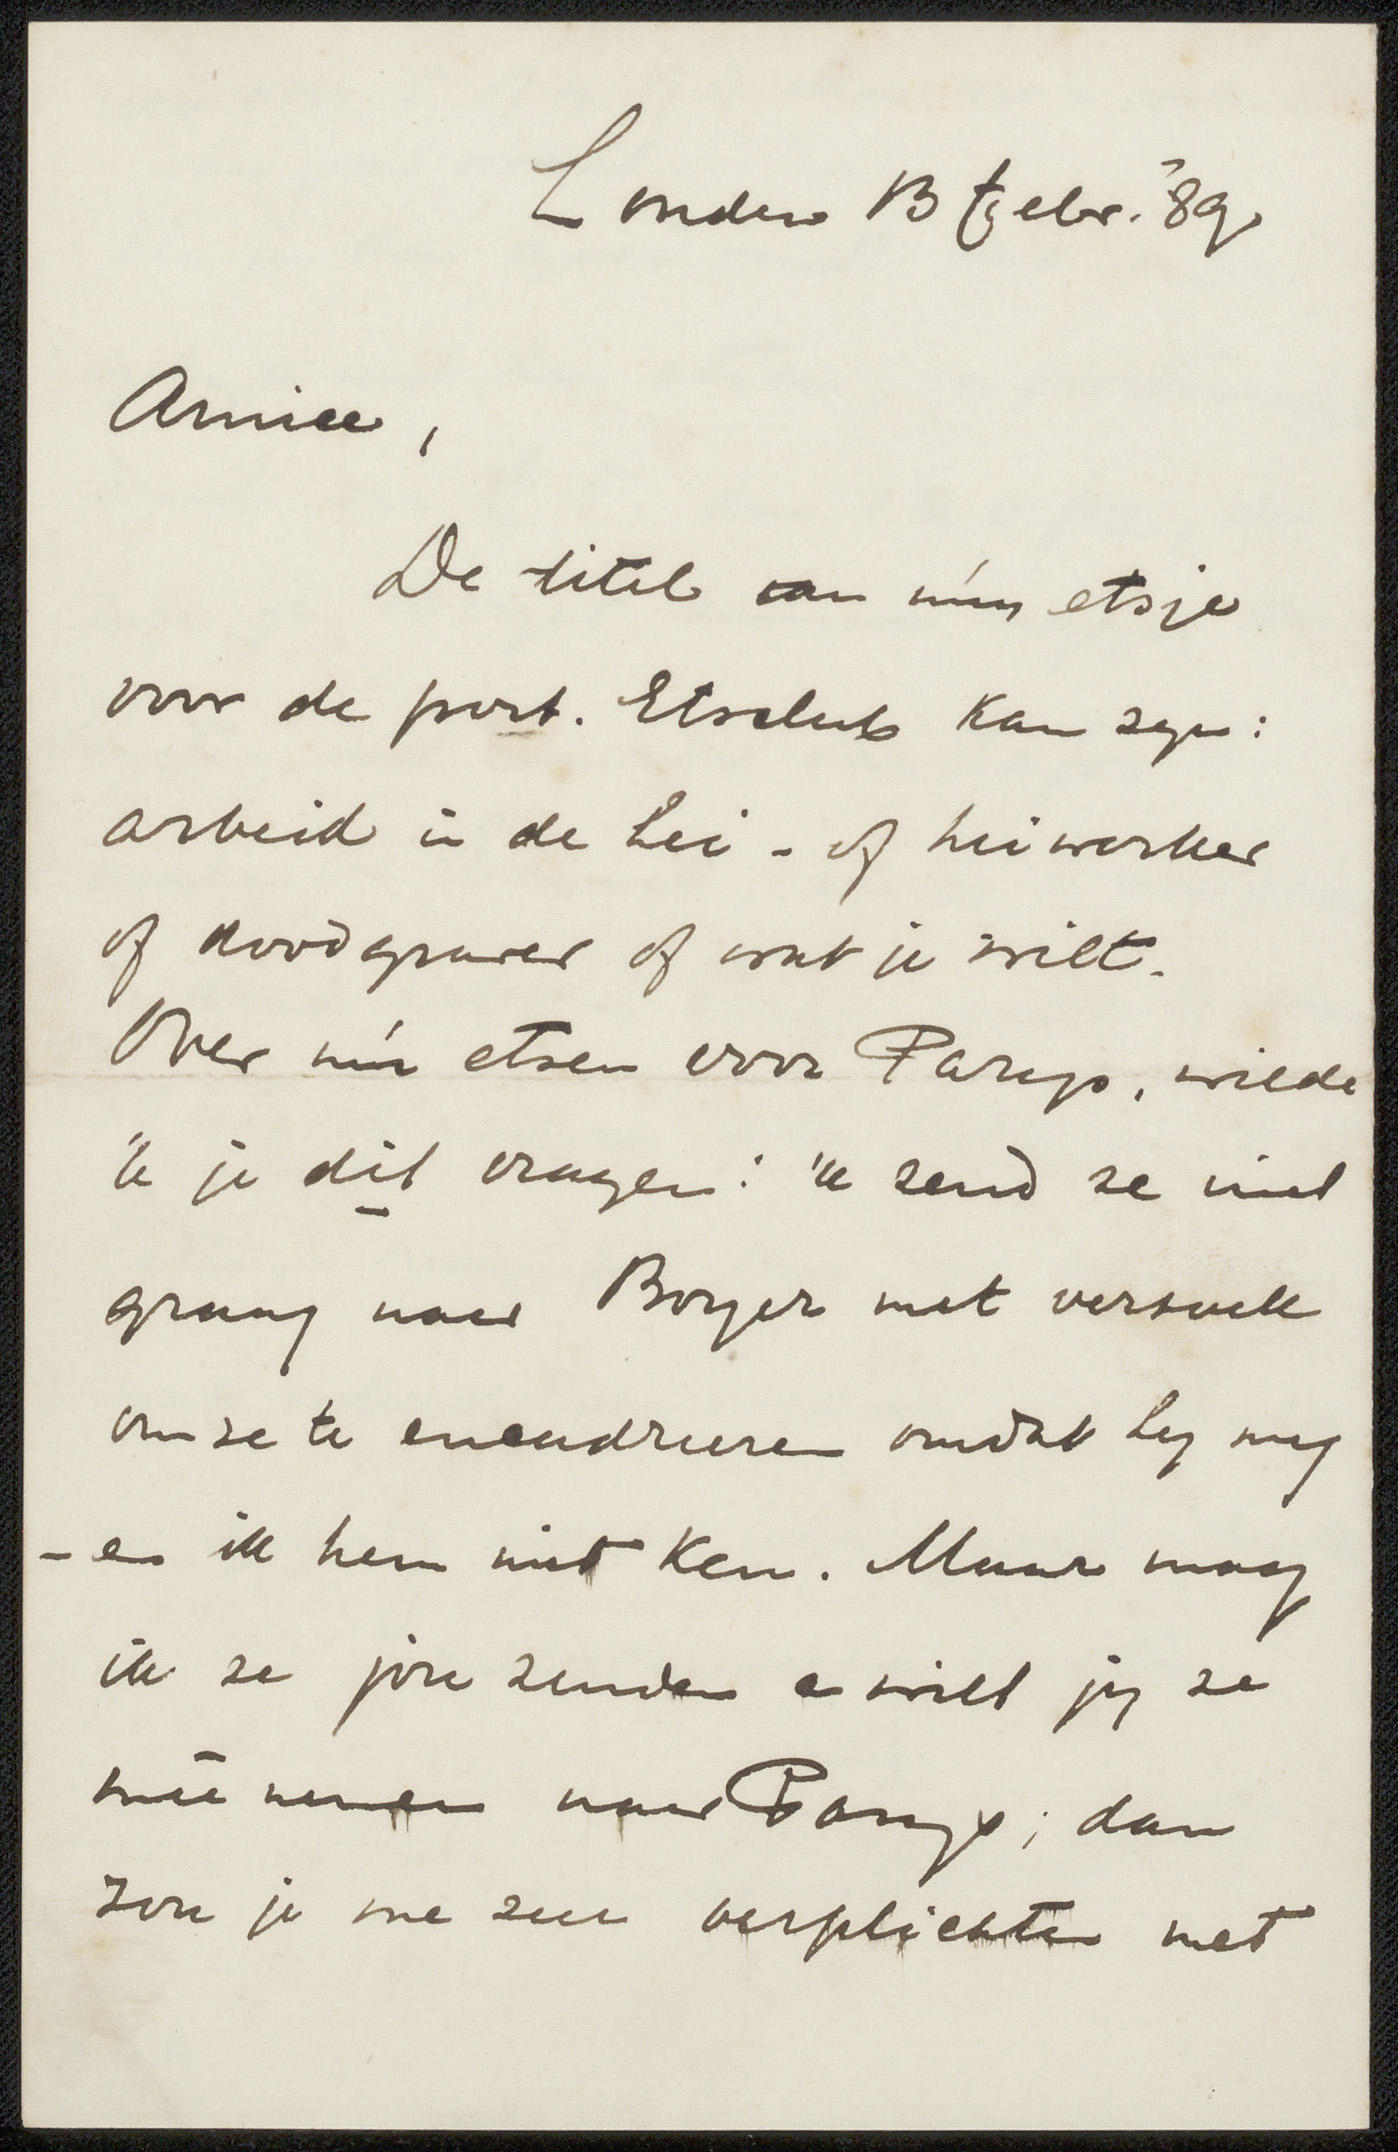 Londen 13 Febr. '89
Amice,
De titel van mijn etsje
voor de port. Etsclub kan zyn:
arbeid in de hei - of heiwerker
of doodgraver of wat je wilt.
Over mijn etsen voor Parys, wilde
'k je dit vragen: 'k zend ze niet
graag naar Boyer met verzoek
om ze te encadreeren omdat hy my
- en ik hem niet ken. Maar mag
ik ze jou zenden en wilt jy ze
meê nemen naar Parys; dan
zou je me zeer verplichten met